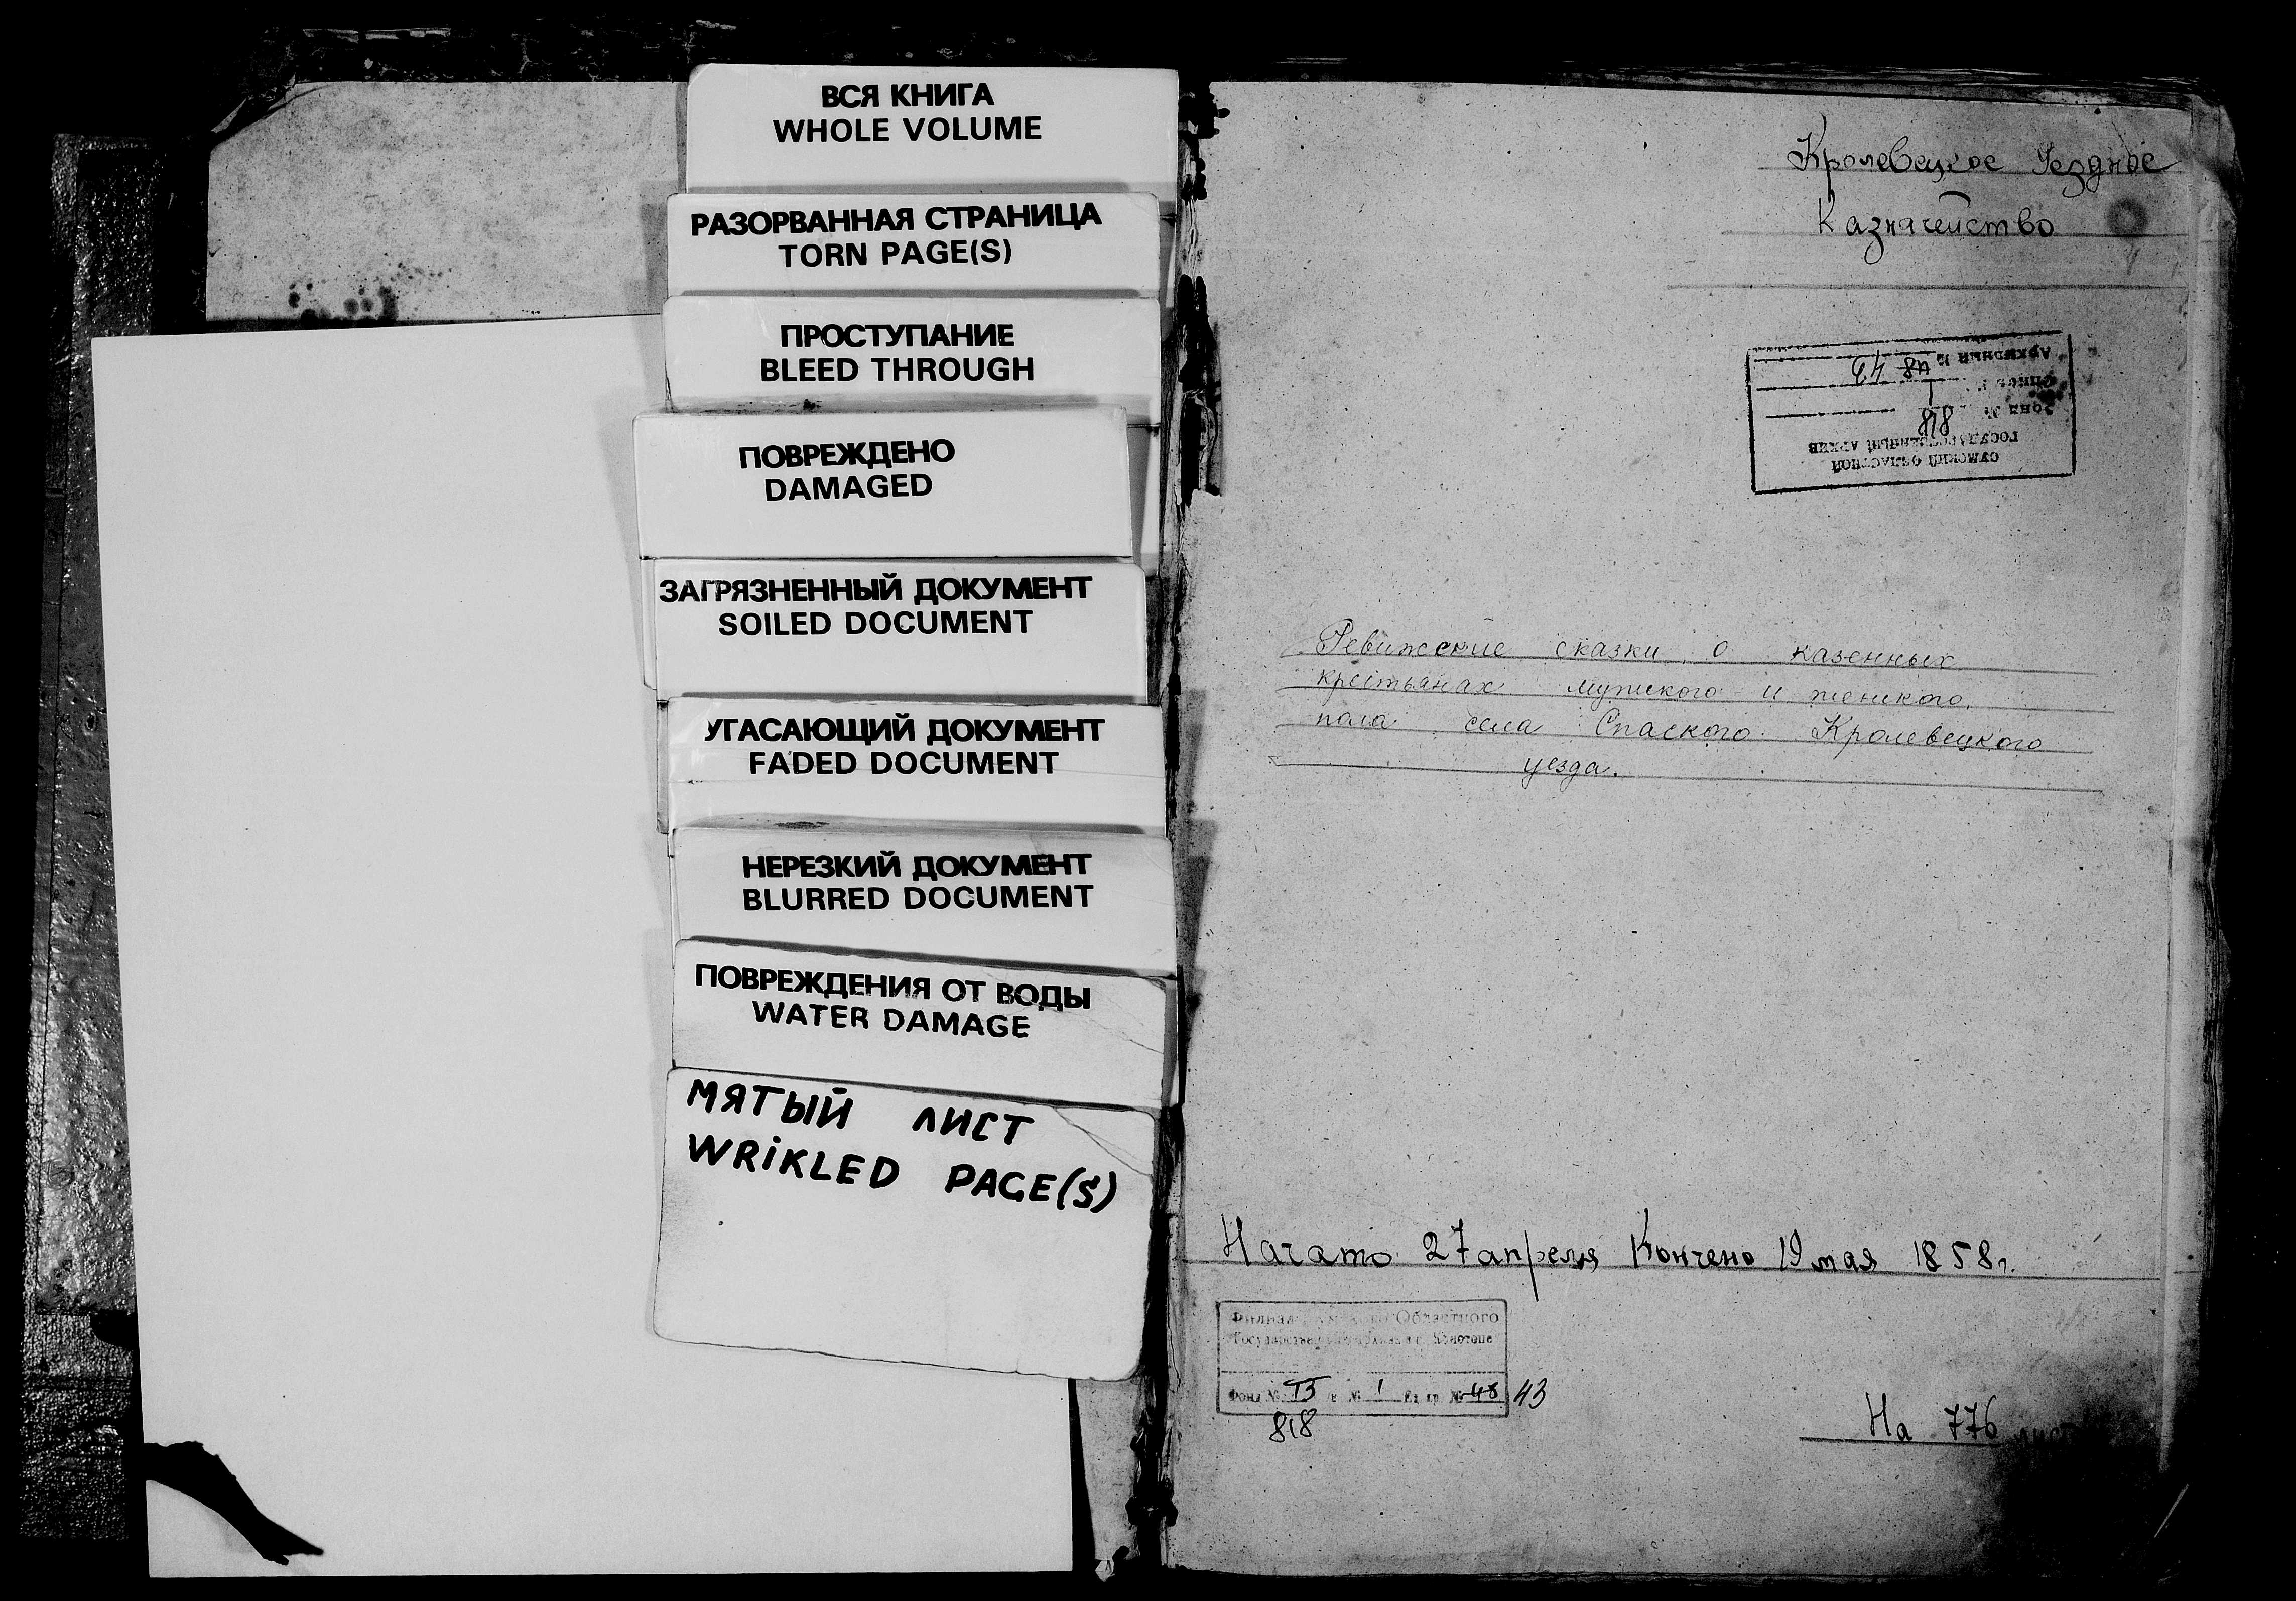 ВСЯ КНИГА
WHOLE VOLUME
РАЗОРВАННАЯ СТРАНИЦА
TORN PAGE(S)
ПРОСТУПАНИЕ
BLEED THROUGH
ПОВРЕЖДЕНО
DAMAGED
ЗАГРЯЗНЕННЫЙ ДОКУМЕНТ
SOILED DOCUMENT
УГАСАЮЩИЙ ДОКУМЕНТ
FADED DOCUMENT
НЕРЕЗКИЙ ДОКУМЕНТ
BLURRED DOCUMENT
ПОВРЕЖДЕНИЯ ОТ ВОДЫ
WATER DAMAGE
МЯТЫЙ ЛИСТ
WRiKLED PAGE(S)
Кролевецкое Уездное
Казначейство
СУМСКИЙ ОБЛАСТНОЙ
ГОСУДАРСТВЕННЫЙ АРХИВ
Фонд № 818
Опись № 1
Архивный № 48 43
Ревижские сказки о казенных
крестьянах мужского и женского
пола села Спаского Кролевецкого
уезда.
Начато 27 апреля Кончено 19 мая 1858 г.
Филиал Областного
Фонд № 13 № 1 Ед. хр. № 48 43
818
На 776